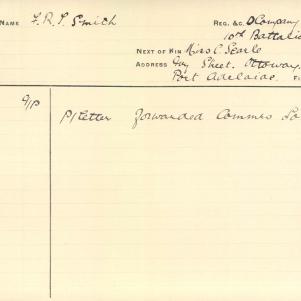 NAME F. R. P. Smith REG. &C. D Company
10th Battalio
NEXT OF KIN Miss C. Searle
ADDRESS Guy Street. Ottoway
Port Adelaide
9/10 P/Letter forwarded Commrs